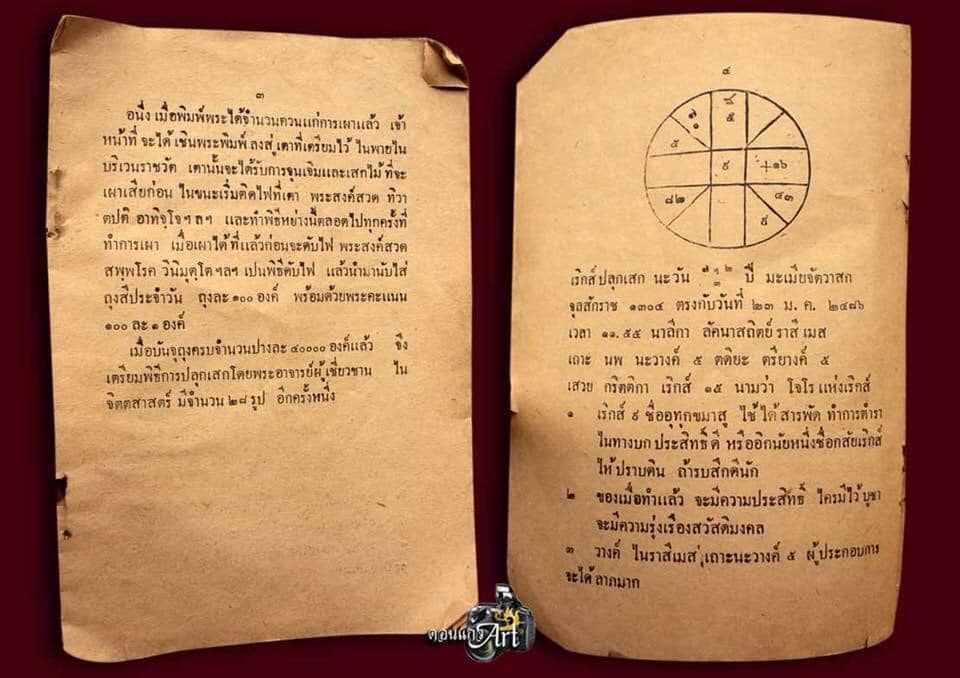 ๓
อนึ่ง เมื่อพิมพ์พระได้จำนวนควนแก่การเผาแล้ว เจ้า
หน้าที่ จะได้ เชินพระพิมพ์ ลงสู่ เตาที่เตรียมไว้ ในพายใน
บริเวนราชวัต เตานั้นจะได้รับการจุนเจิมและเสกไม้ ที่จะ
เผาเสียก่อน ในขนะเริ่มติดไฟที่เตา พระสงค์สวด ทิวา
ตปติ อาทิจฺโจ ฯ ล ฯ และทำพิธีหย่างนี้ตลอดไปทุกครั้งที่
ทำการเผา เมื่อเผาได้ ที่แล้วก่อนจะดับไฟ พระสงค์สวด
สพฺพโรค วินิมุตฺโต ฯลฯ เปนพิธีดับไฟ แล้วนำมานับใส่
ถุงสีประจำวัน ถุงละ ๑๐๐ องค์ พร้อมด้วยพระคะแนน
๑๐๐ ละ ๑ องค์
เมื่อบันจุถุงครบจำนวนปางละ ๔๐๐๐๐ องค์แล้ว จึง
เตรียมพิธีการปลุกเสกโดยพระอาจารย์ผู้เชี่ยวชาน ใน
จิตตสาสตร์ มีจำนวน ๒๘ รูป อีกครั้งหนึ่ง
๔
๗
๑
๕
๕
๙
+๑๖
๘๒
๔๓
เริกส์ ปลุกเสก นะ วัน ๗ ๒ ปี มะเมียจัตวาสก
จุลสักราช ๑๓๐๔ ตรงกับวันที่ ๒๓ ม. ค. ๒๔๘๖
เวลา ๑๑.๕๕ นาลิกา ลัคนาสถิตย์ ราสี เมส
เถาะ นพ นะวางค์ ๕ ตติยะ ตรียางค์ ๕
เสวย กริตติกา เริกส์ ๑๕ นามว่า โจโร แห่งเริกส์
๑ เริกส์ ๙ ชื่ออุทุกขมาสู ไช้ ได้ สารพัด ทำการตำรา
ในทางบก ประสิทธิ์ดี หรืออีกนัยหนึ่งชื่อกสัยเริกส์
ให้ ปราบดิน ถ้ารบสึกดีนัก
๒ ของเมื่อทำแล้ว จะมีความประสิทธิ์ ใครมีไว้ บูชา
จะมีความรุ่งเรืองสวัสดิมงคล
๓ วางค์ ในราสีเมส เถาะนะวางค์ ๕ ผู้ประกอบการ
จะได้ ลาภมาก
Art